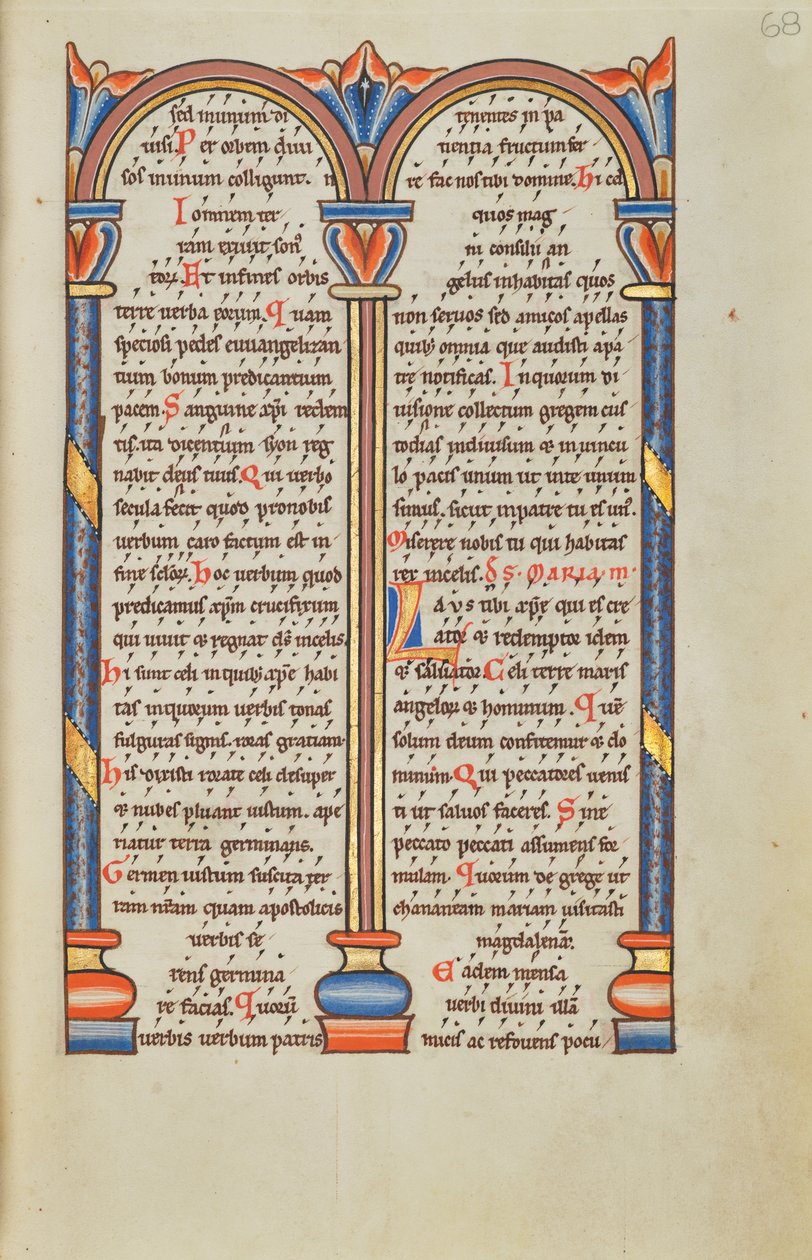 68
sed inunum di
uisi. Per orbem diui
sos inunum colligunt. n
I omnem ter
ram exiuit son᷒
eoꝝ. Et infines orbis
terre uerba eorum. Quam
speciosi pedes euuangelizan
tium bonum predicantium
pacem. Sanguine xp̄i redem
tis. ita dicentium syon reg
nabit deus tuus. Qui uerbo
secula fecit quod pronobis
uerbum caro factum est in
fine sclōꝝ. Hoc uerbum quod
predicamus xp̄m crucifixum
qui uiuit & regnat ds̄ incelis.
Hi sunt celi inquibꝫ xp̄e habi
tas inquorum uerbis tonas
fulguras signis. roras gratiam.
His dixisti rorate celi desuper
& nubes pluant iustum. ape
riatur terra germinans.
Germen iustum suscita ter
ram nr̄am quam apostolicis
uerbis se
rens germina
re facias. Quorū
uerbis uerbum patris
tenentes in pa
tientia fructum fer
re fac nos tibi domine. Hi celi
quos mag
ni consilii an
gelus inhabitas quos
non seruos sed amicos apellas
quibꝫ omnia que audisti apa
tre notificas. Inquorum di
uisione collectum gregem cus
todias indiuisum & in uincu
lo pacis unum ut inte unum
simus. sicut inpatre tu es un᷒.
Miserere nobis tu qui habitas
rex incelis. DS. MARIA. M.
LAVS tibi xp̄e qui es cre
ator & redemptor idem
& saluator. Celi terre maris
angeloꝝ & hominum. Quē
solum deum confitemur & do
minum. Qui peccatores uenis
ti ut saluos faceres. Sine
peccato peccati assumens for
mulam. Quorum de grege ut
chananeam mariam uisitasti
magdalenam.
Eadem mensa
uerbi diuini illā
micis ac refouens pocu